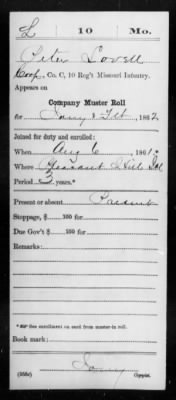 L 10 Mo.
Peter Lovell
Corp, Co. C, 10 Reg't Missouri Infantry.
Appears on
Company Muster Roll
for Jany & Feb, 1862
Joined for duty and enrolled:
When Aug 6, 1861.*
Where Pleasant Hill
Period 3 years.*
Present or absent Present
Stoppage, $ 100 for
Due Gov't $ 100 for
Remarks:
*See enrollment on card from muster-in roll.
Book mark:
(358c) Copyist.